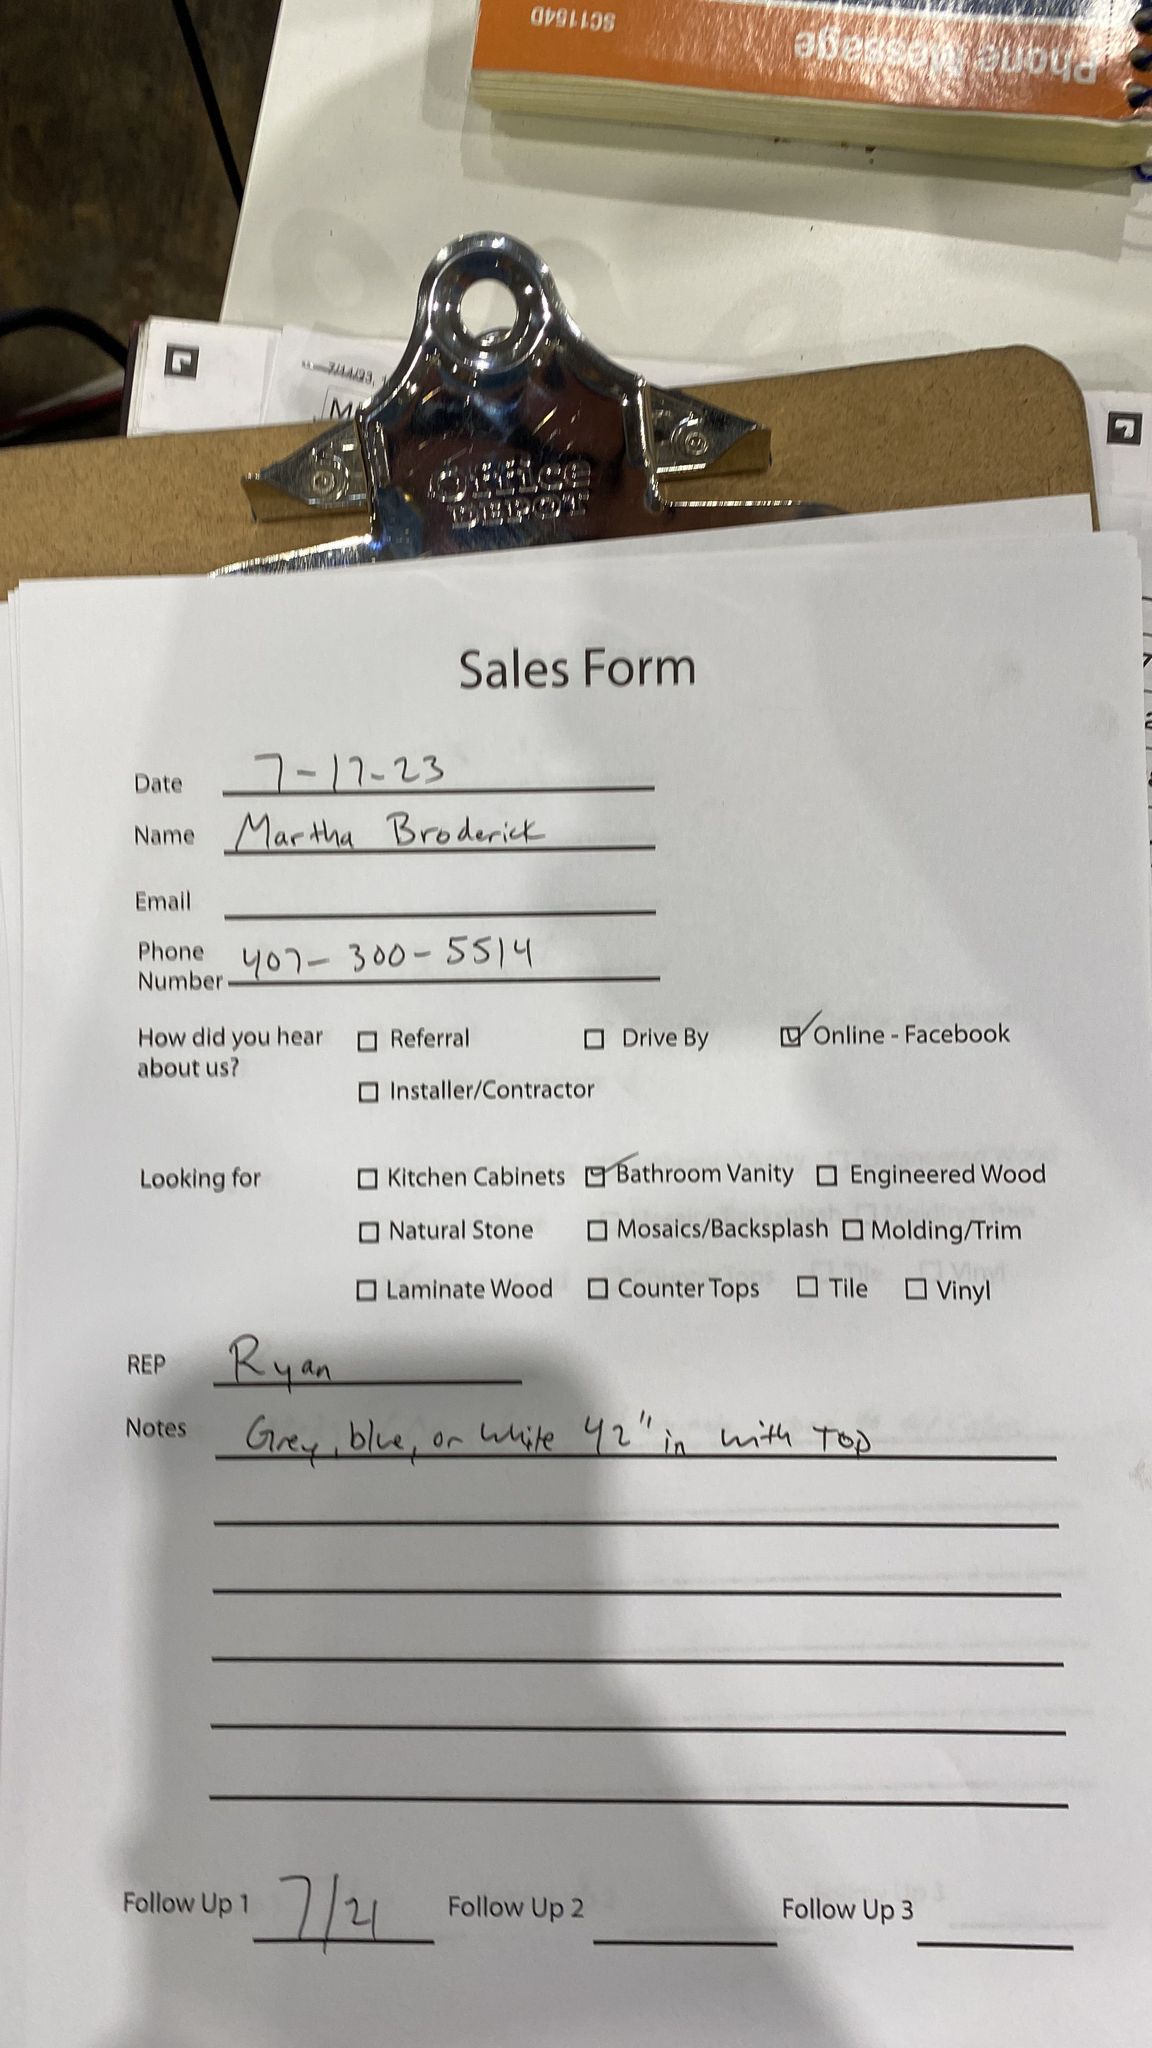 SC1154D
Phone Message
7/14/23, 1
M
Office
DEPOT
Sales Form
Date 7-17-23
Name Martha Broderick
Email
Phone Number 407-300-5514
How did you hear about us? ☐ Referral ☐ Drive By ☑ Online - Facebook
☐ Installer/Contractor
Looking for ☐ Kitchen Cabinets ☑ Bathroom Vanity ☐ Engineered Wood
☐ Natural Stone ☐ Mosaics/Backsplash ☐ Molding/Trim
☐ Laminate Wood ☐ Counter Tops ☐ Tile ☐ Vinyl
REP Ryan
Notes Grey, blue, or white 42" in with TOP
Follow Up 1 7/21 Follow Up 2 Follow Up 3